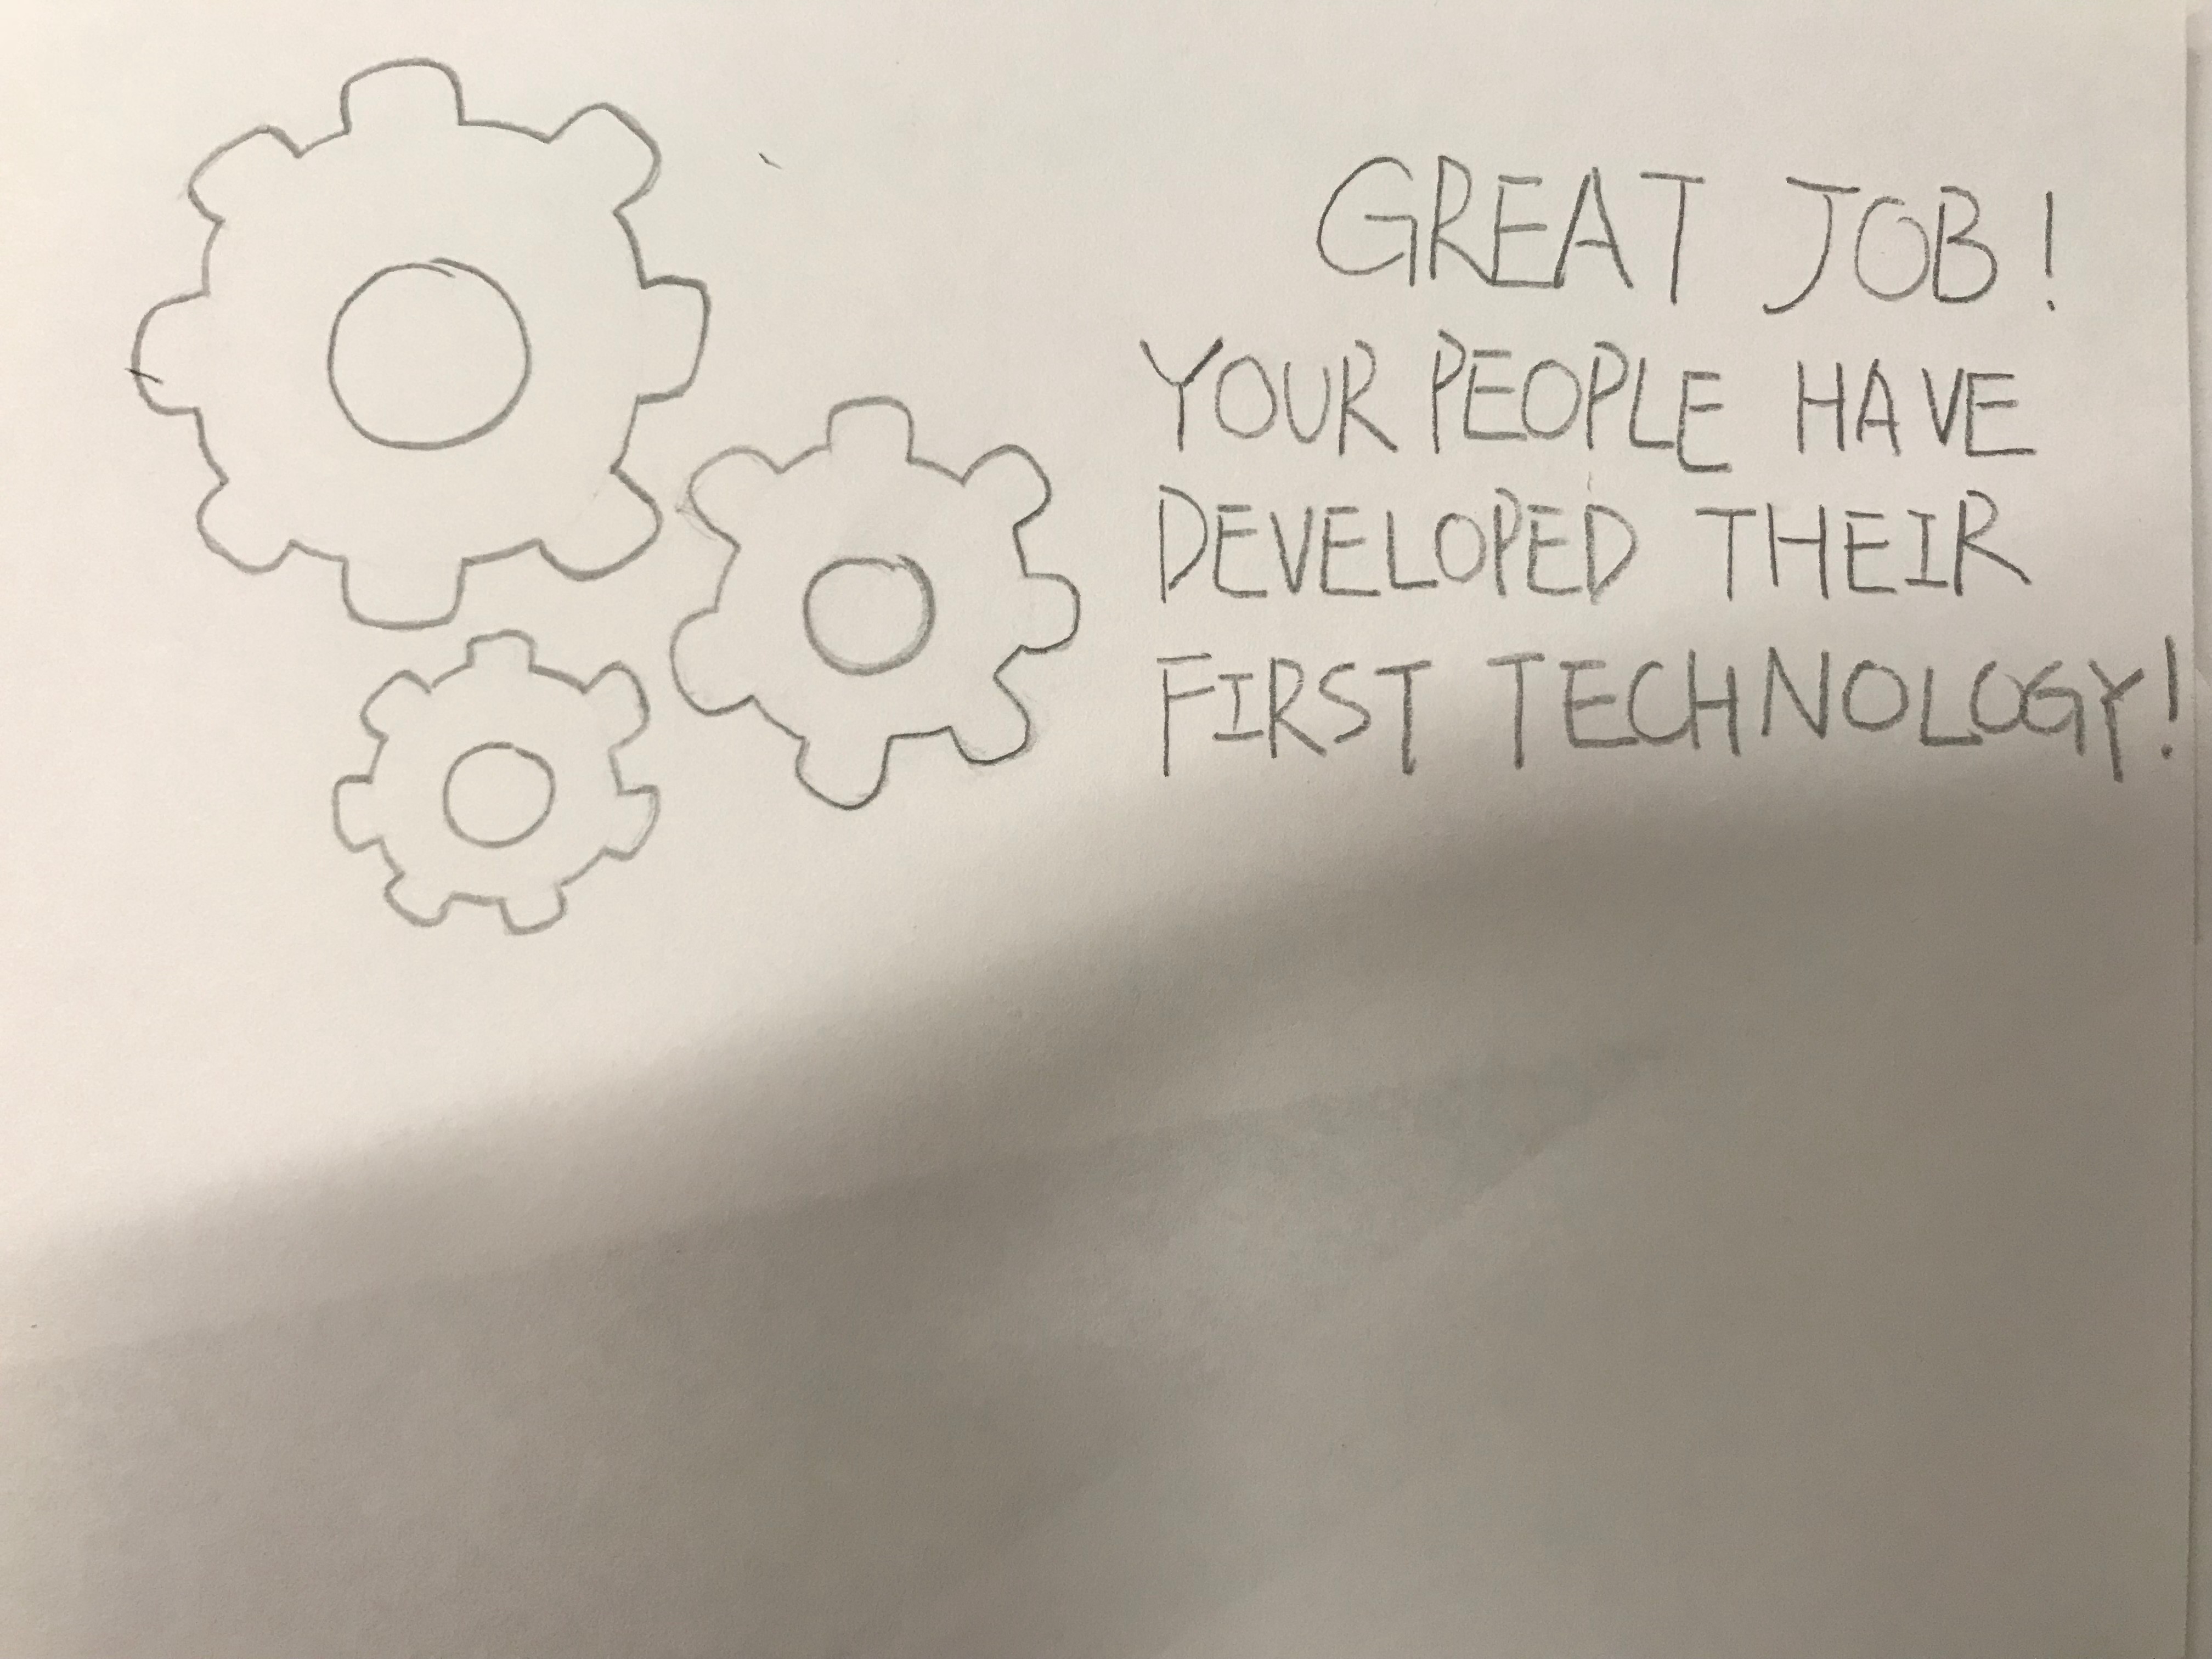 GREAT JOB!
YOUR PEOPLE HAVE
DEVELOPED THEIR
FIRST TECHNOLOGY!